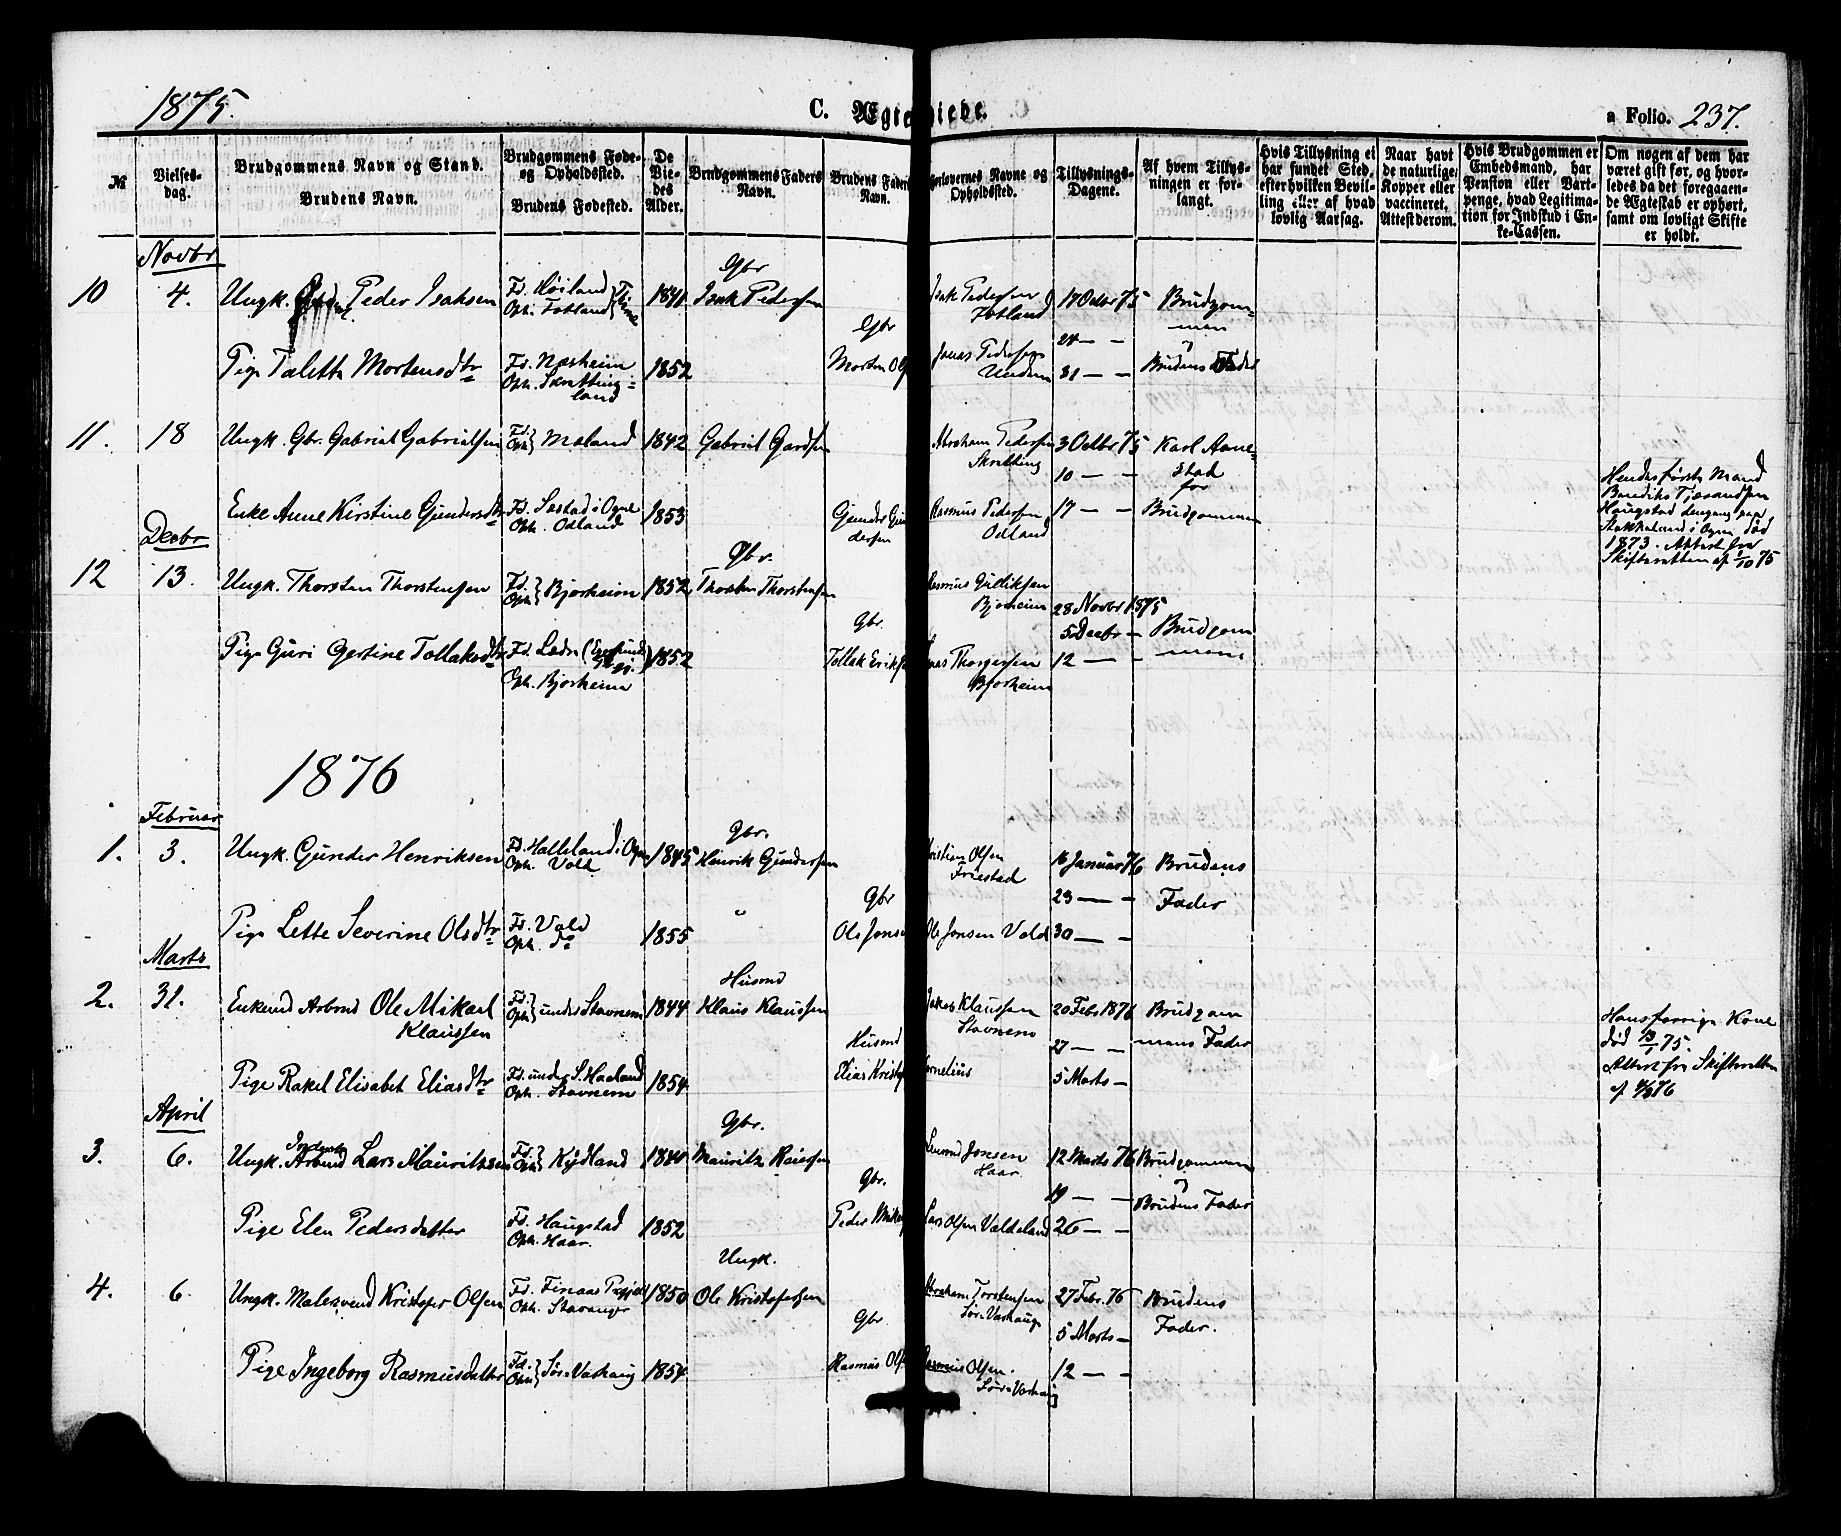 1875.
C. Ægteviede.
a Folio. 237.
№
Vielses-
dag.
Brudgommens Navn og Stand.
Brudens Navn.
Brudgommens Føde-
og Opholdssted.
Brudens Fødested.
De
Vie-
des
Alder.
Brudgommens Faders
Navn.
Brudens Faders
Navn.
Forlovernes Navne og
Opholdssted.
Tillysnings-
Dagene.
Af hvem Tillys-
ningen er for-
langt.
Hvis Tillysning ei
har fundet Sted,
efter hvilken Bevil-
ling eller af hvad
lovlig Aarsag.
Naar havt
de naturlige
Kopper eller
vaccineret,
Attest derom.
Hvis Brudgommen er
Embedsmand, har
Pension eller Vart-
penge, hvad Legitima-
tion for Indskud i En-
ke-Cassen.
Om nogen af dem har
været gift før, og hvor-
ledes da det foregaaen-
de Ægteskab er ophørt,
samt om lovligt Skifte
er holdt.
Novbr
10 4. Ungk. Peder Isaksen
Fd. Høiland
Oph. Fotland } Time
1841
Gbr
Isak Pedersen
Isak Pedersen
Fotland
17 Octbr 75
24 — —
31 — —
Brudgom-
men
Pige Talette Mortensdtr
Fd. Næsheim
Oph. Skretting-
land
1852
Gbr
Morten Ols
Jonas Pedersen
Undem
Brudens Fader
11. 18 Ungk. Gbr. Gabriel Gabrielsen
Fd.
Oph. } Motland
1842
Gabriel Gardsen
Abraham Pedersen
Skretting
3 Octbr 75
10 — —
17 — —
Karl Aane-
stad
for
Brudgommen
Enke Anne Kirstine Gundersdtr
Fd. Søstad i Ogne
Oph. Odland
1853
Gunder Gun
dersen
Rasmus Pedersen
Odland
Hendes første Mand
Bendiks Tjærandsen
Haugstad
Stokkeland i Ogne død
1873. Attest fra
Skifteretten af 1/10 75
Decbr
12 13. Ungk. Thorsten Thorstensen
Fd.
Oph. } Bjorheim
1852
Gbr.
Thorsten Thorstensen
Rasmus Gulliksen
Bjorheim
28 Novbr 1875
5 Decbr —
12 — —
Brudgom
mens
Pige Guri Gertine Tollaksdtr
Fd. Lædre
Oph. Bjorheim
1852
Gbr.
Tollak Eriks
Thorgersen
Bjorheim
1876
Februar
1. 3. Ungk. Gunder Henriksen
Fd. Halleland i Ogne
Oph. Vold
1845
Gbr.
Henrik Gundersen
Kristian Olsen
Friestad
16 Januar 76
23 — —
30 — —
Brudens
Fader
Pige Lette Severine Olsdtr
Fd. Vold
Oph. do
1855
"
Gbr
Ole Jonsen
Ole Jonsen Vold
Marts
2. 31. Enkemd Arbmd Ole Mikael
Klaussen
Fd.
Oph. } under Stavnem
1844
Husmd
Klaus Klaussen
Jakob Klaussen
Stavnem
20 Febr 1876
27 — —
5 Marts —
Brudgom
mens Fader
Hans forrige Kone
død 13/1 75.
Attest fra Skifteretten
Pige Rakel Elisabet Eliasdtr
Fd. under S. Haaland
Oph. Stavnem
1854
Husmd
Elias Kristof
Cornelius
April
3. 6. Ungk. Arbmd Lars Mauritzsen
Fd.
Oph. } Kydland
1844
Gbr.
Mauritz Reiersen
Jonsen
Haar
12 Marts 76
19 — —
26 — —
Brudgommen
Brudens Fader
Pige Elen Pedersdatter
Fd. Haugstad
Oph. Haar.
1852
Gbr.
Peder Mikal
Lars Olsen Valdeland
4. 6. Ungk. Malersvend Kristofer Olsen
Fd. Finaas
Oph. Stavanger
1850
Ungk.
Ole Kristofersen
Abraham Torstensen
Sør-Varhaug
27 Febr. 76
5 Marts —
12 — —
Brudens
Fader.
Pige Ingeborg Rasmusdatter
Fd.
Oph. } Sør-Varhaug
1854
Gbr
Rasmus Ols
Rasmus Olsen.
Sør-Varhaug